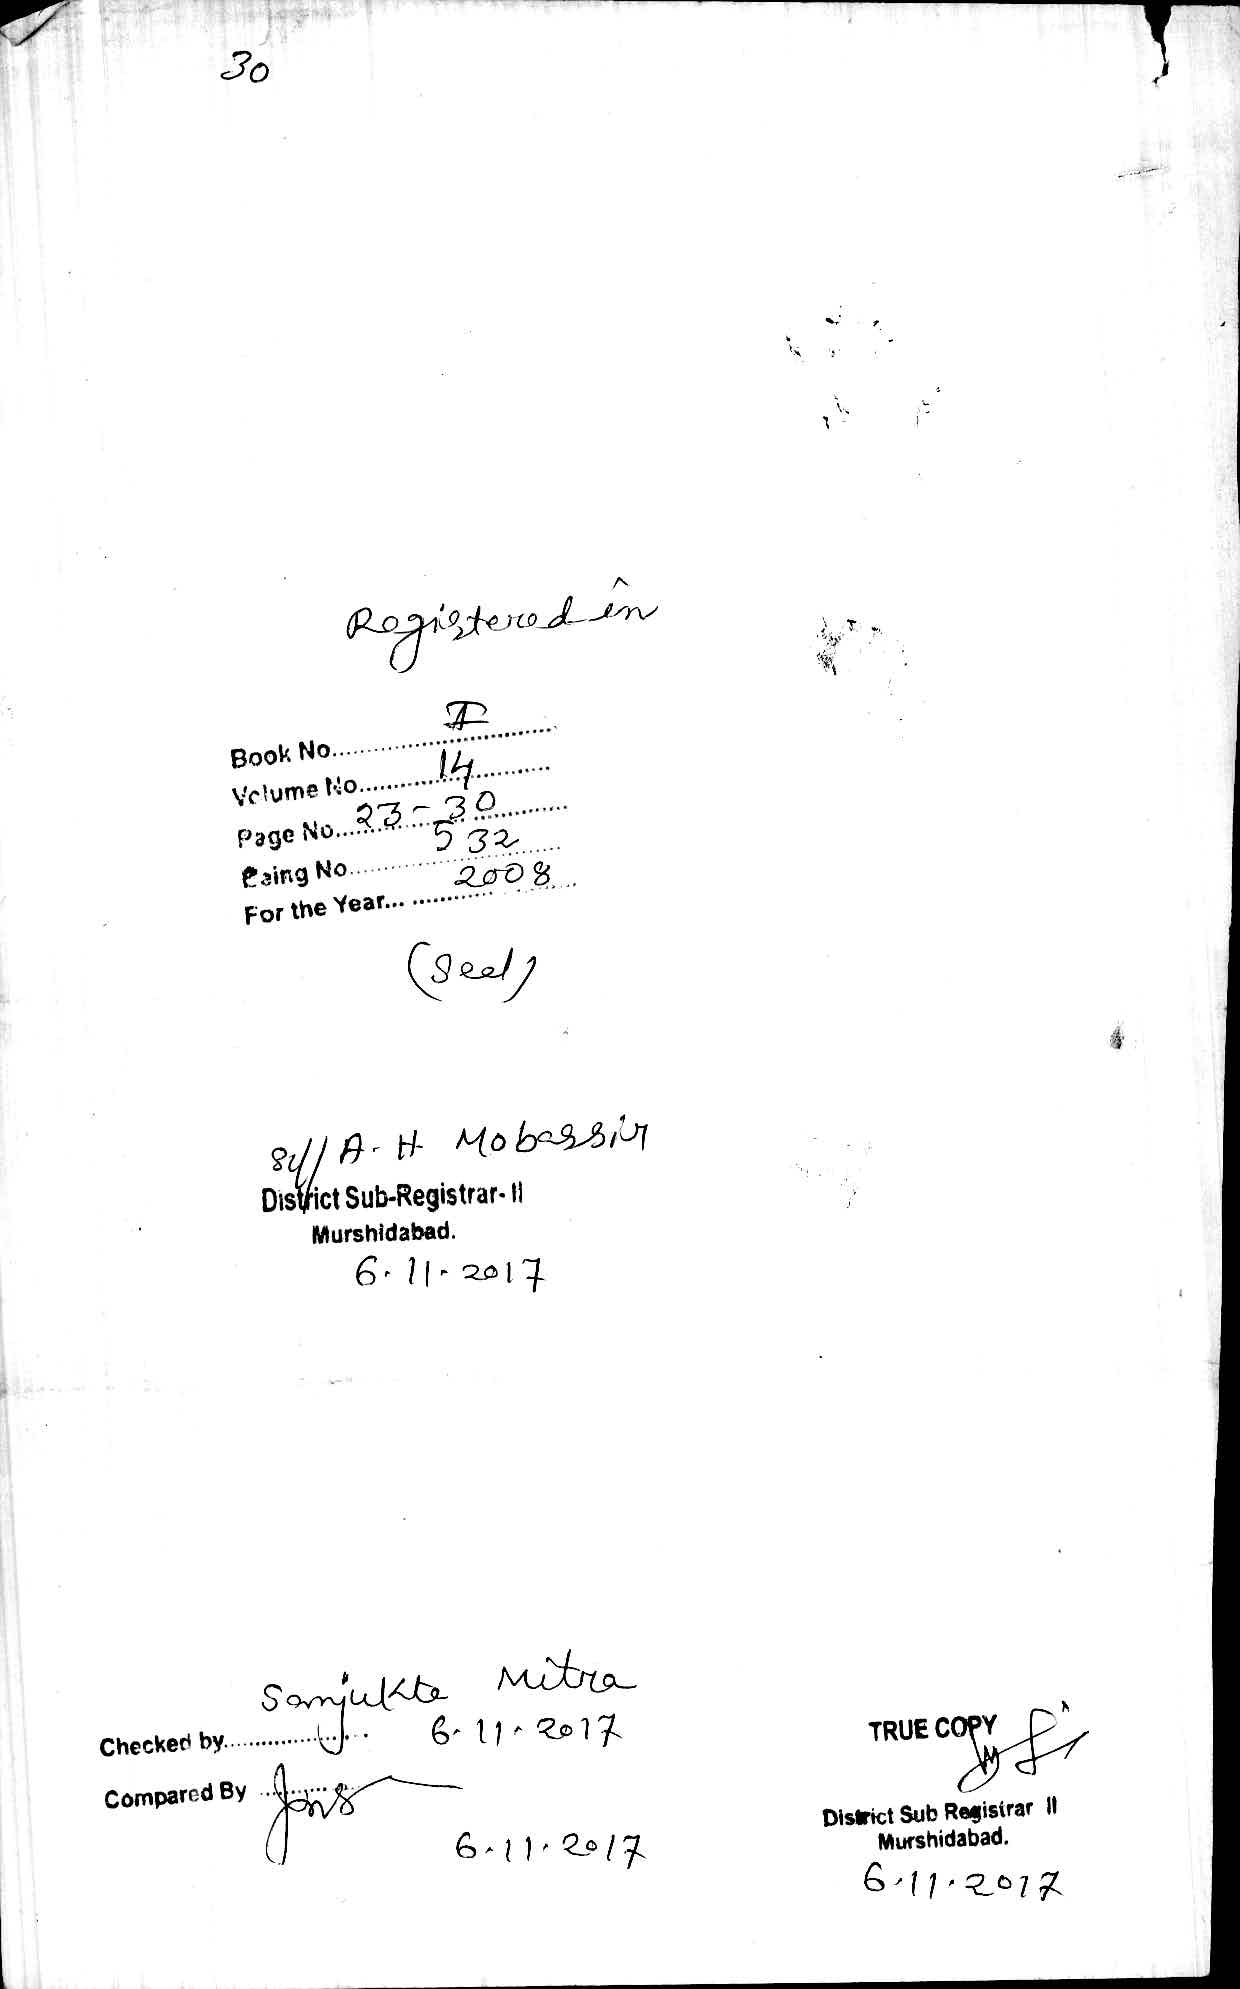 30
Registered in
Book No. I
Volume No. 14
Page No. 23-30
Being No. 532
For the Year... 2008
(Seal)
Sd// A. H Mobassir
District Sub-Registrar- II
Murshidabad.
6.11.2017
Sanjukta Mitra
Checked by 6.11.2017
Compared By
6.11.2017
TRUE COPY
District Sub Registrar II
Murshidabad.
6.11.2017